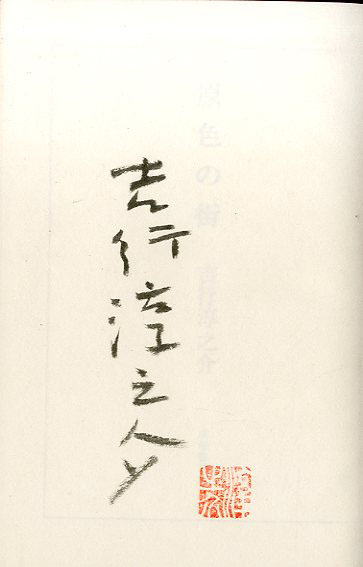 吉行淳之介
原色の街 吉行淳之介